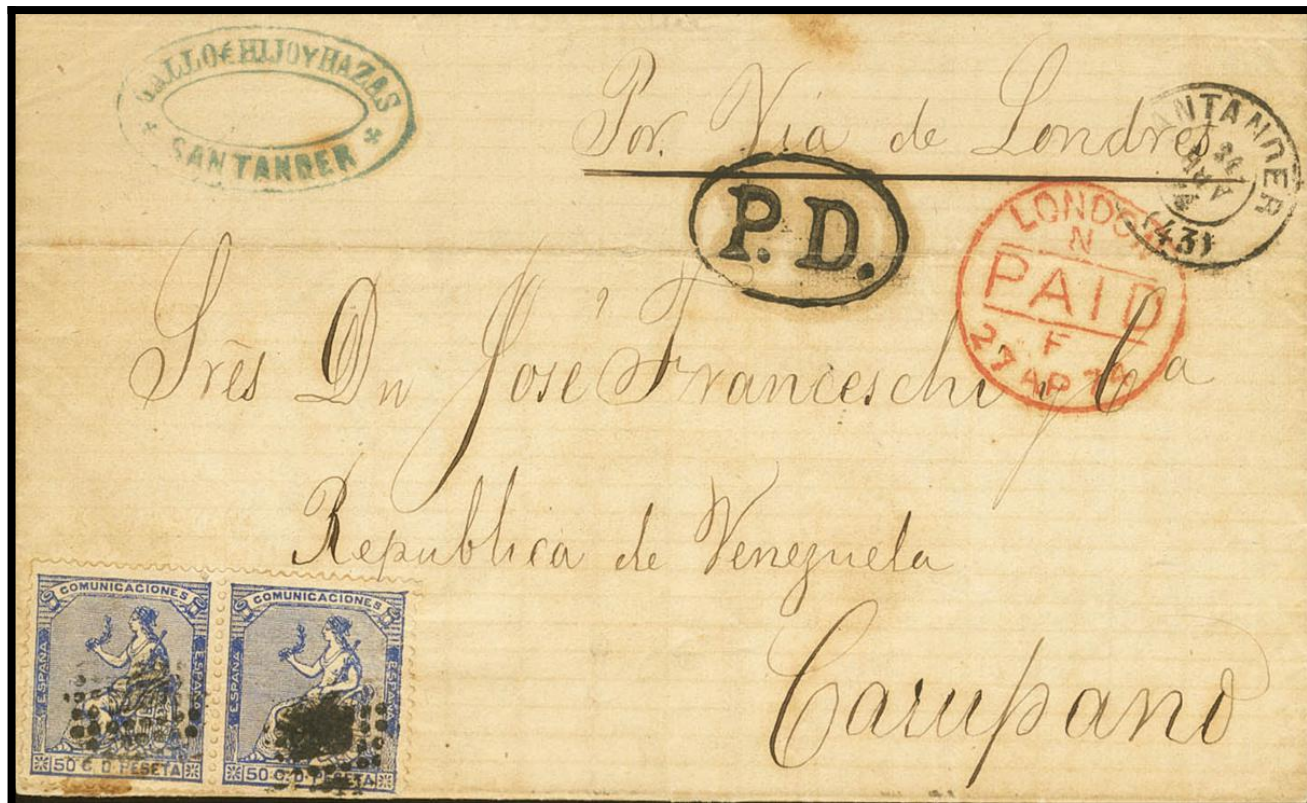 GALLO É HIJO Y HAZAS
SANTANDER
Por Via de Londres
SANTANDER
ABR
(43)
P. D.
LONDON
N
PAID
F
27 AP 74
Srēs Dn José Franceschi y Cª
Republica de Venezuela
Carupano
COMUNICACIONES
ESPAÑA
ESPAÑA
50 C. D PESETA
COMUNICACIONES
ESPAÑA
ESPAÑA
50 C. D PESETA